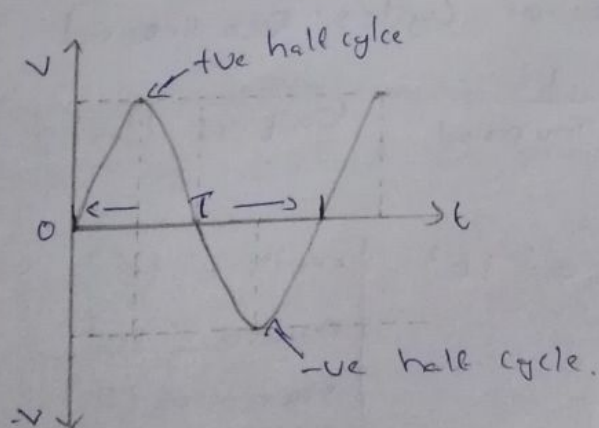 V
+ve half cylce
T
0
t
-ve half cycle.
-V